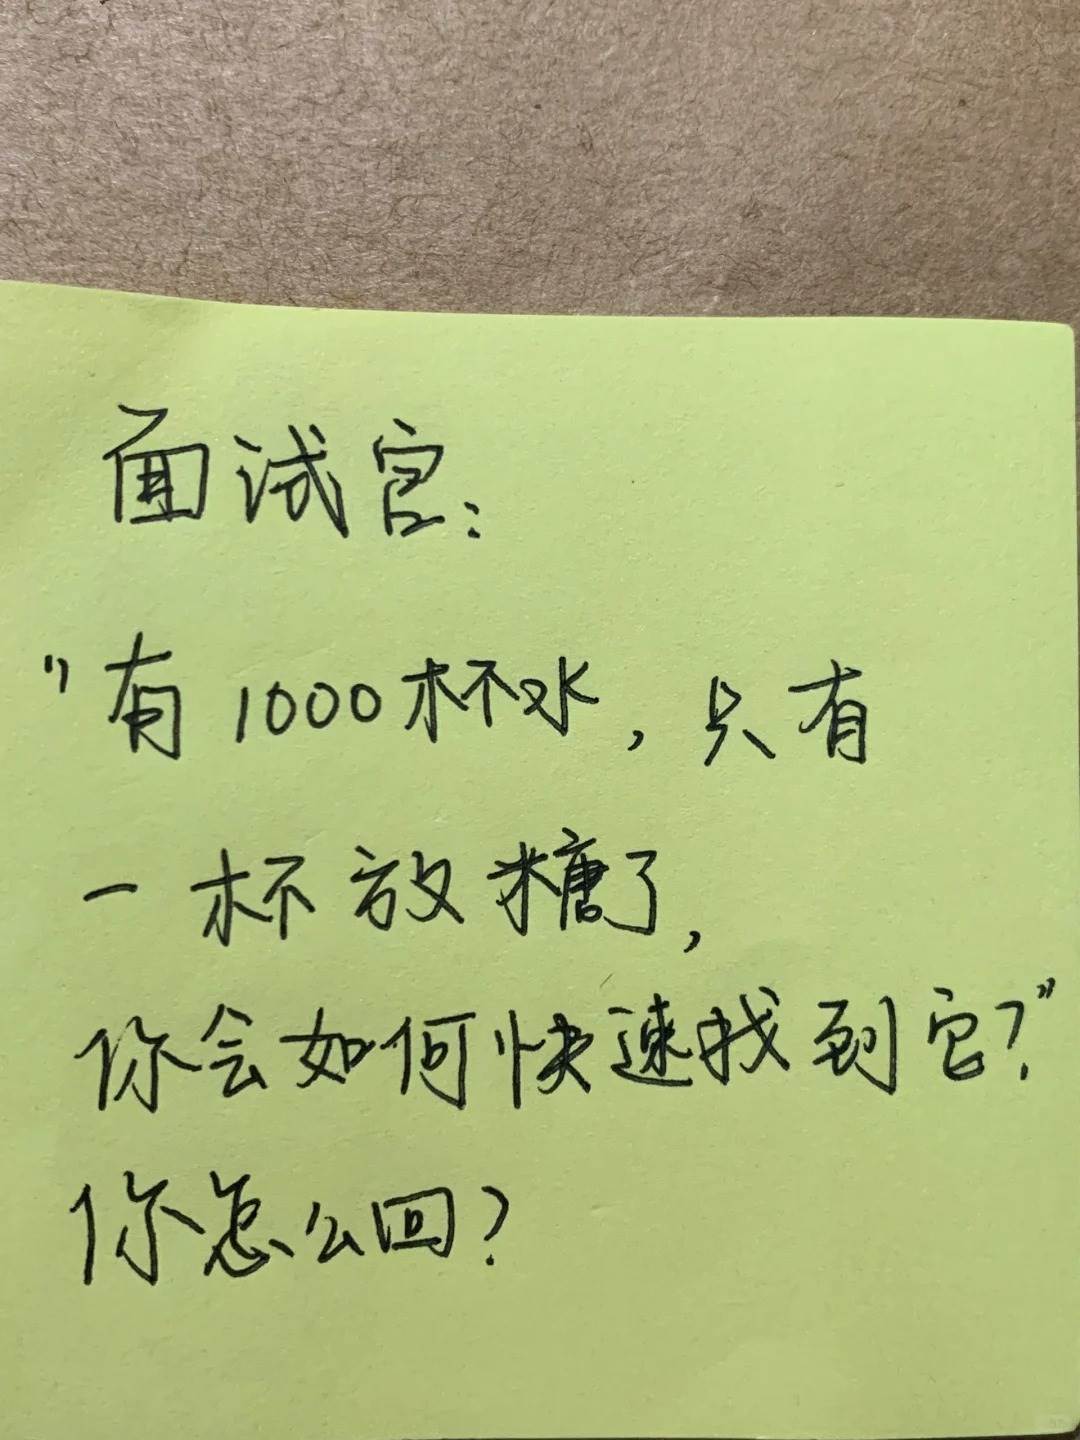 面试官：
"有1000杯水，只有
一杯放糖了，
你会如何快速找到它？"
你怎么回？